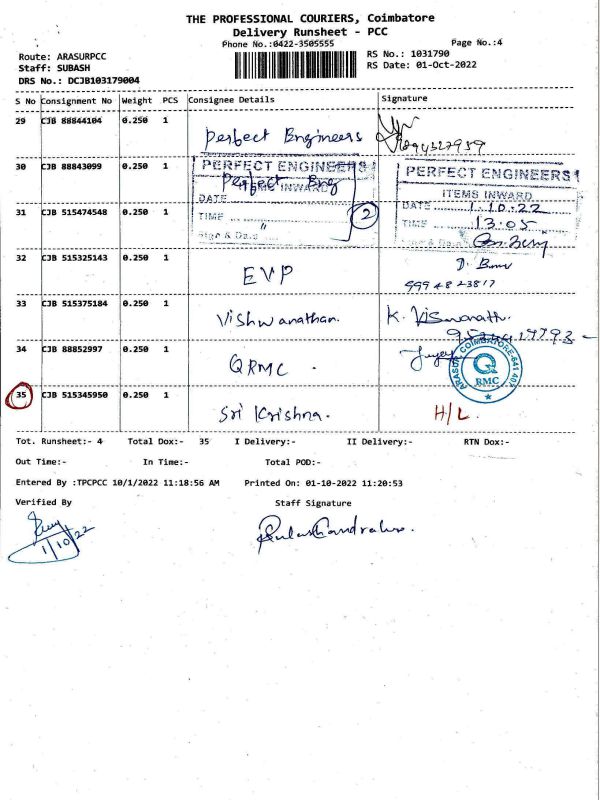 THE PROFESSIONAL COURIERS, Coimbatore
Delivery Runsheet - PCC
Phone No.:0422-3505555
Page No.:4
Route: ARASURPCC
Staff: SUBASH
DRS No.: DCJB103179004
RS No.: 1031790
RS Date: 01-Oct-2022
S No Consignment No Weight PCS Consignee Details Signature
29 CJB 88844104 0.250 1 Perfect Engineers
30 CJB 88843099 0.250 1 Perfect Eng
PERFECT ENGINEERS
ITEMS INWARD
DATE
TIME
Sign & Desi
2
PERFECT ENGINEERS
ITEMS INWARD
DATE 1.10.22
TIME 13.05
31 CJB 515474548 0.250 1 "
32 CJB 515325143 0.250 1 EVP
33 CJB 515375184 0.250 1 Vishwanathan. K. Viswanath
34 CJB 88852997 0.250 1 QRMC .
ARASUR COIMBATORE-641 407
Q
RMC
35 CJB 515345950 0.250 1 Sri Krishna. H/L
Tot. Runsheet:- 4 Total Dox:- 35 I Delivery:- II Delivery:- RTN Dox:-
Out Time:- In Time:- Total POD:-
Entered By :TPCPCC 10/1/2022 11:18:56 AM Printed On: 01-10-2022 11:20:53
Verified By Staff Signature
1/10/22